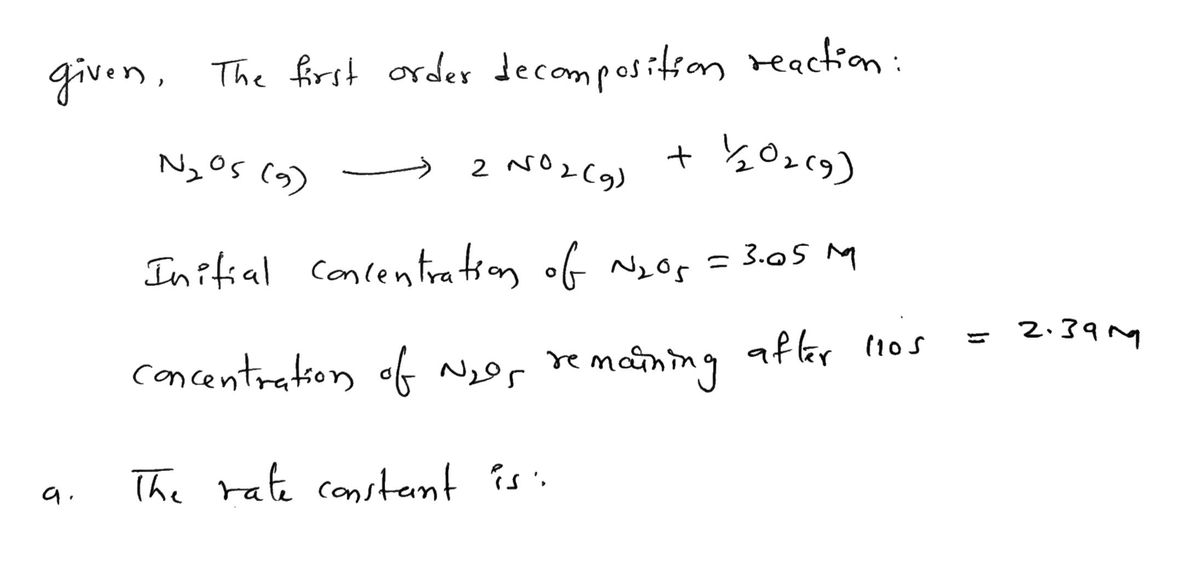 given, The first order decomposition reaction:
N₂O₅ (g) ⟶ 2 NO₂(g) + ½O₂(g)
Initial concentration of N₂O₅ = 3.05 M
concentration of N₂O₅ remaining after 110s = 2.39 M
a. The rate constant is: